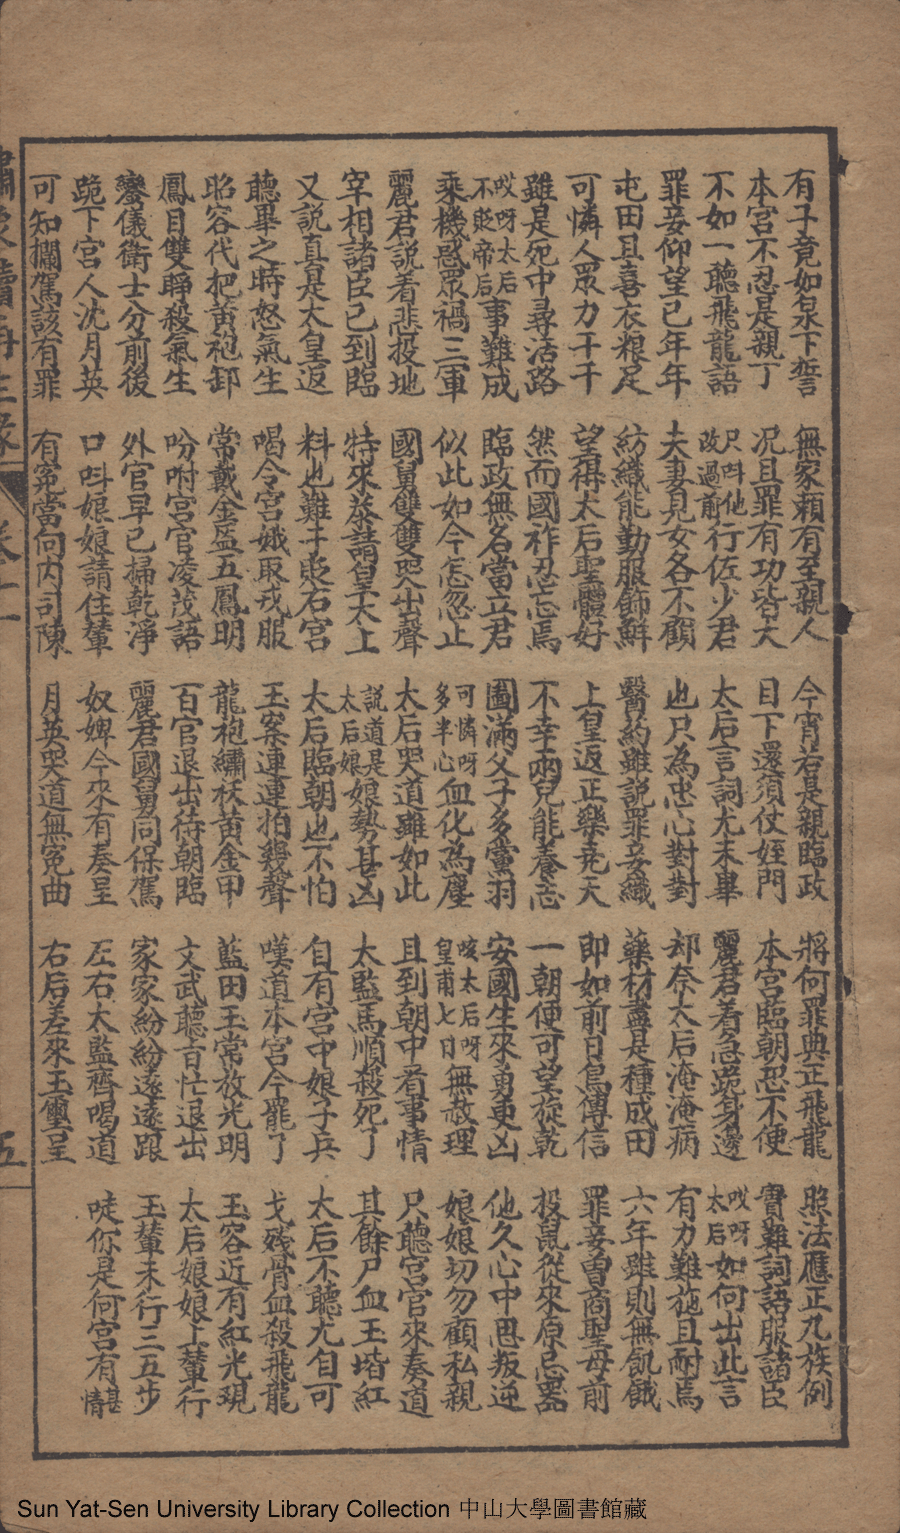 有子竟如泉下誓 無家賴有至親人 今宵若是親臨政 將何罪典正飛龍 照法應正九族例
本宮不忍是親丁 况且罪有功皆大 目下還須仗姪門 本宮臨朝恐不便 實難詞語服諸臣
不如一聽飛龍語 只呌他改過前行佐少君 太后言詞尤未畢 麗君着急跪身邊 哎呀太后如何出此言
罪妾仰望已年年 夫妻見女各不顧 也只為忠心對對 却奈太后淹淹病 有力難施且耐焉
屯田且喜衣粮足 紡織能動服飾鮮 醫葯雖説罪妾織 藥材盡是種成田 六年雖則無飢餓
可憐人眾力干干 望得太后聖體好 上皇返正樂堯天 即如前日鳥傳信 罪妾曽商聖母前
雖是死中尋活路 然而國祚忍忘焉 不幸兩兒能養志 一朝便可望旋乾 投鼠從來原忌器
哎呀太后不貶帝后事難成 臨政無名當立君 圓滿父子多黨羽 安國生來勇更凶 他久心中思叛逆
乘機惑眾禍三軍 似此如今怎忽止 可憐呀多半心血化為塵 咳太后呀皇甫七日無赦理 娘娘切勿顧私親
麗君説着悲投地 國舅雙雙哭出聲 太后哭道雖如此 且到朝中看事情 只聽宮官來奏道
宰相諸臣已到臨 特來恭請皇太上 説道是太后娘娘勢甚凶 太監馬順殺死了 其餘尸血玉堦紅
又説真是太皇返 料也難于貶右宮 太后臨朝也不怕 自有宮中娘子兵 太后不聽尤自可
聽畢之時怒氣生 喝令宮娥取戎服 玉案連連拍幾聲 嘆道本宮今罷了 戈殘骨血殺飛龍
昭容代把黃袍卸 常戴金盔五鳳明 龍袍繡袄黃金甲 藍田玉常放光明 玉容近有紅光現
鳳目雙睜殺氣生 吩咐宮官凌茂語 百官退出待朝臨 文武聽言忙退出 太后娘娘上輦行
鑾儀衛士分前後 外官早已掃乾淨 麗君國舅同保駕 家家紛紛遠遠跟 玉輦未行三五步
跪下宮人沈月英 口呌娘娘請住輦 奴婢今來有奏呈 左右太監齊喝道 唗你是何宮有甚情
可知攔駕該有罪 有冤當向内司陳 月英哭道無冤曲 右后差來玉璽呈
續再生緣 卷十一 五
Sun Yat-Sen University Library Collection 中山大學圖書館藏